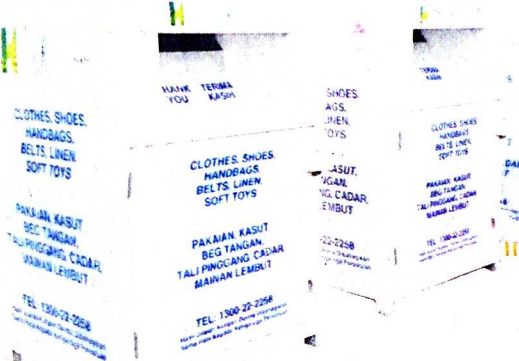 CLOTHES, SHOES,
HANDBAGS,
BELTS, LINEN,
SOFT TOYS
PAKAIAN, KASUT
BEG TANGAN,
TALI PINGGANG, CADAR,
MAINAN LEMBUT
TEL: 1300-22-2258
HANK TERIMA
YOU KASIH
CLOTHES, SHOES,
HANDBAGS,
BELTS, LINEN,
SOFT TOYS
PAKAIAN, KASUT
BEG TANGAN,
TALI PINGGANG, CADAR,
MAINAN LEMBUT
TEL: 1300-22-2258
SHOES,
AGS,
LINEN,
TOYS
KASUT,
NGAN,
NG, CADAR,
LEMBUT
-22-2258
TERIMA
KASIH
CLOTHES, SHOES,
HANDBAGS,
BELTS, LINEN,
SOFT TOYS
PAKAIAN, KASUT
BEG TANGAN,
TALI PINGGANG, CADAR,
MAINAN LEMBUT
TEL: 1300-22-2258